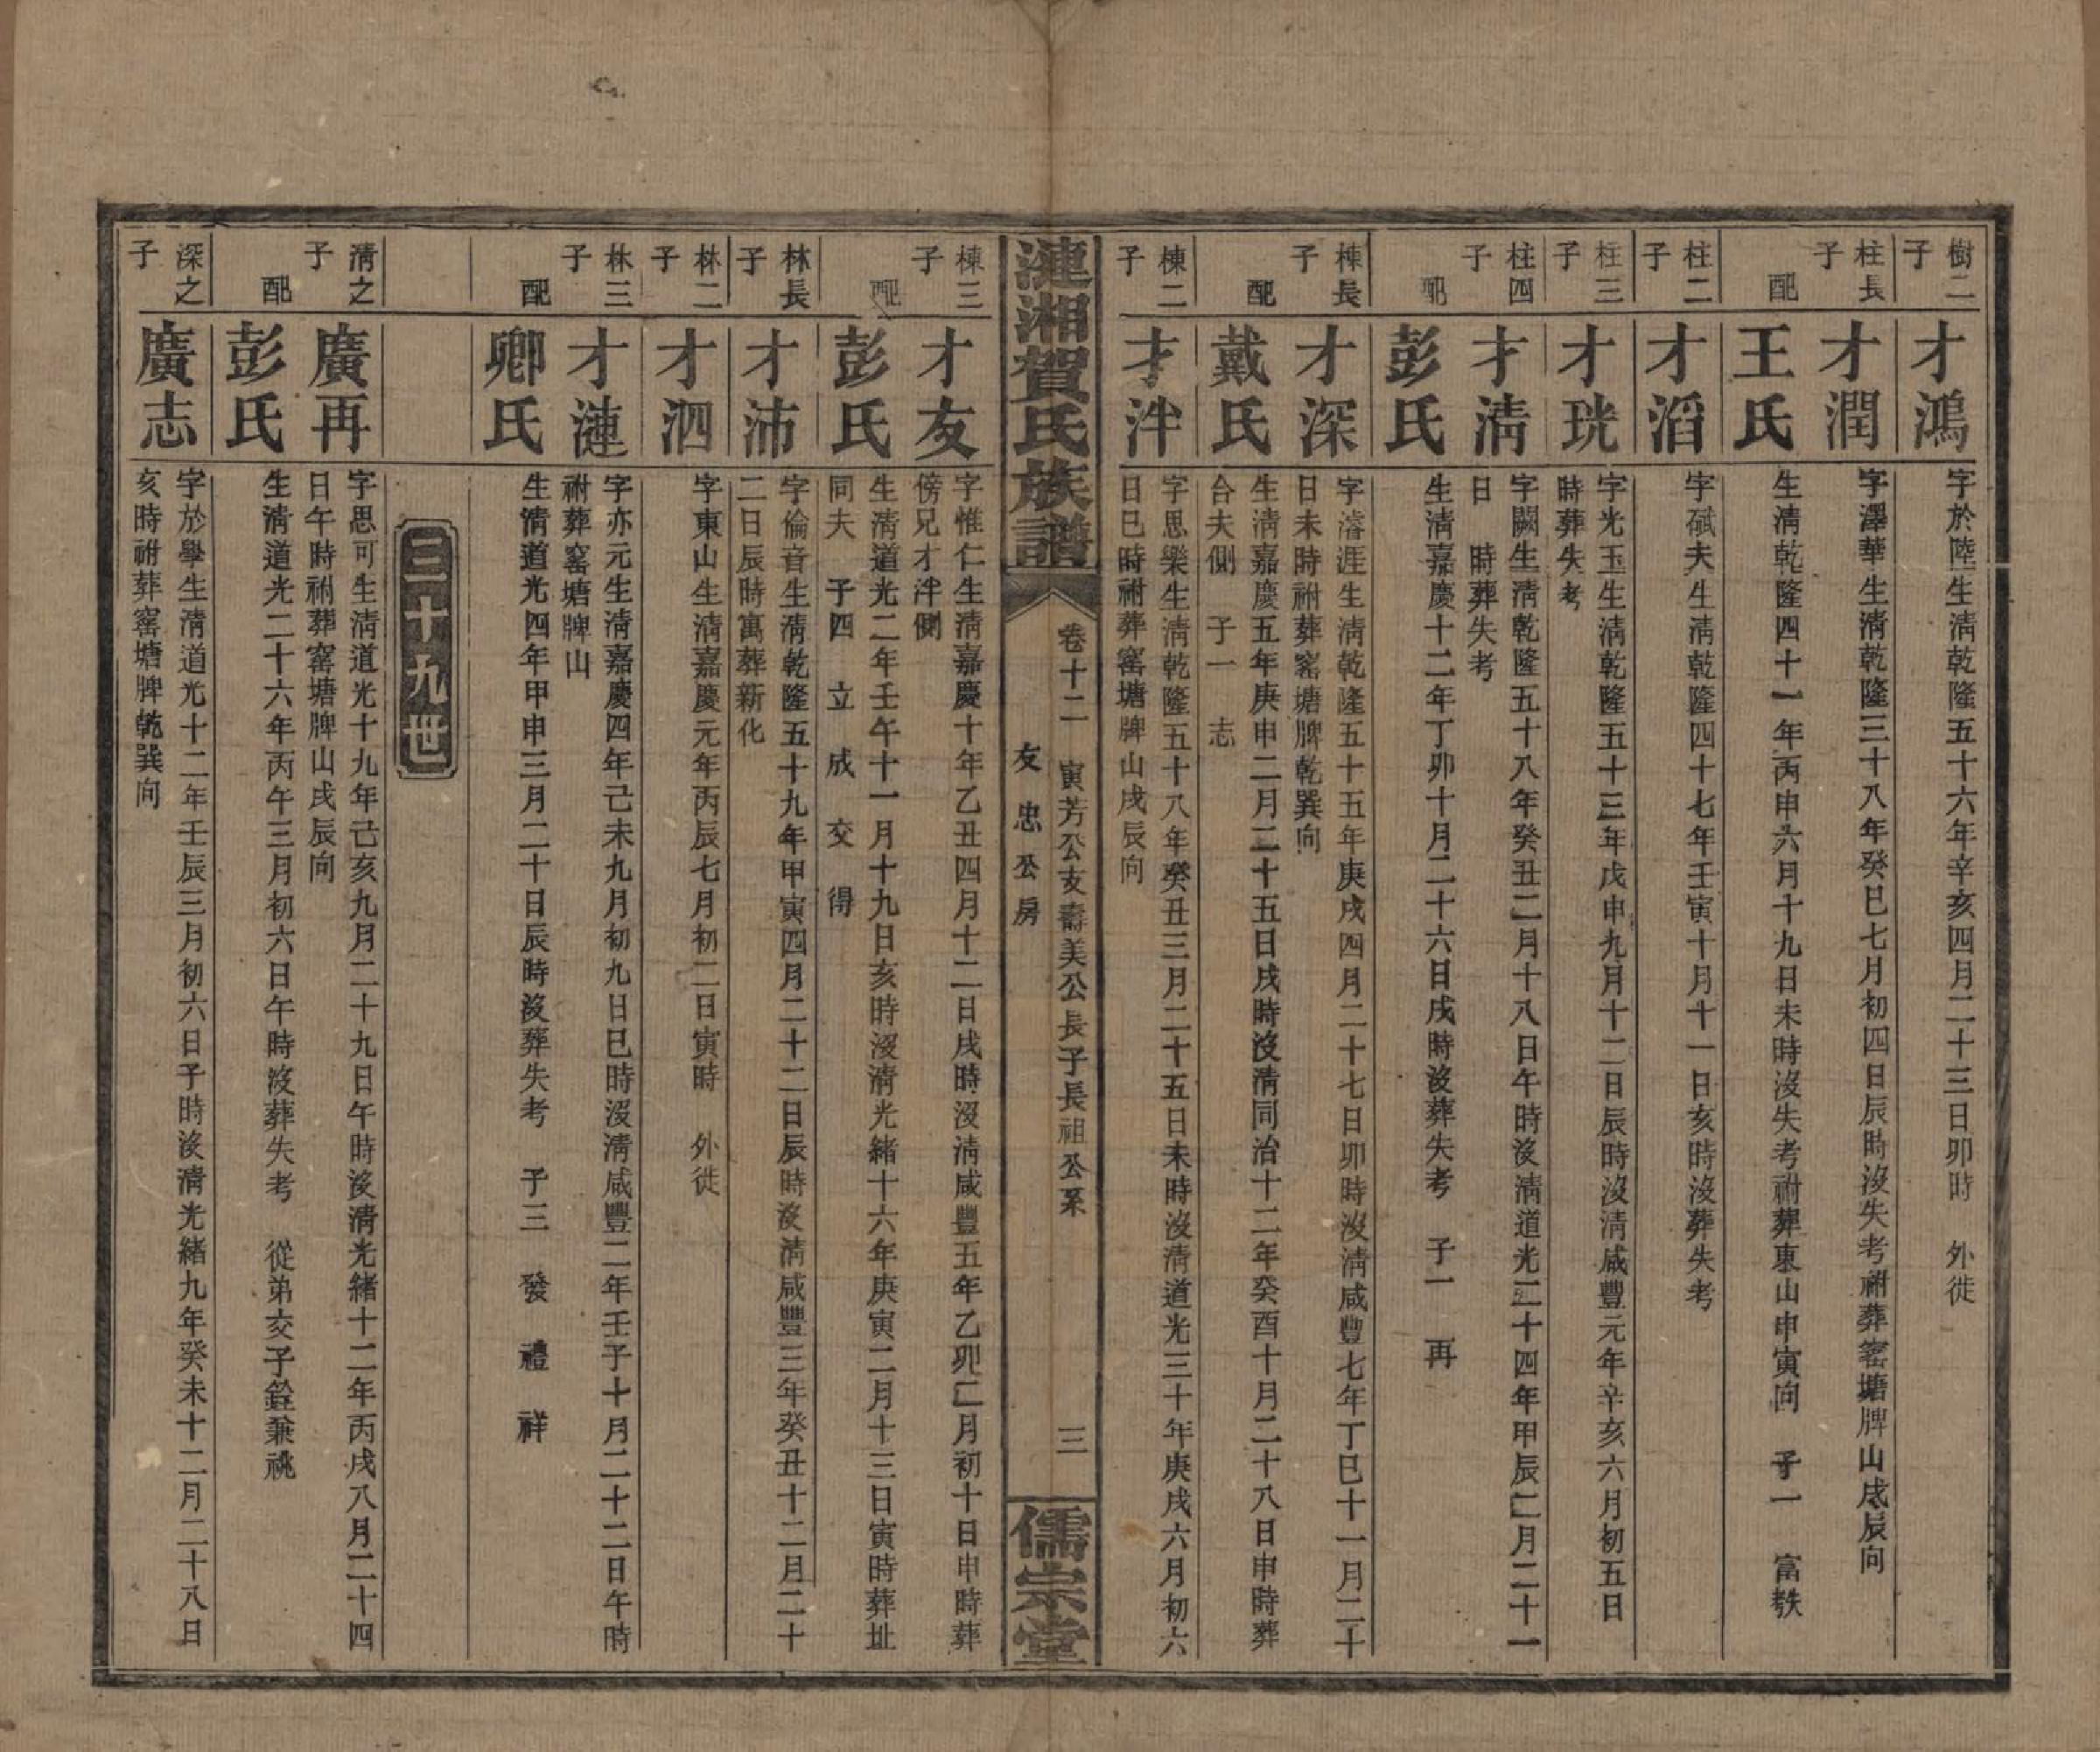 樹二子
才鴻
字於陸生清乾隆五十六年辛亥四月二十三日卯時　外徙
柱長子
才潤
字澤華生清乾隆三十八年癸巳七月初四日辰時沒失考祔葬窰塘牌山戌辰向
配
王氏
生清乾隆四十一年丙申六月十九日未時沒失考祔葬東山申寅向　子一　富秩
柱二子
才滔
字砥夫生清乾隆四十七年壬寅十月十一日亥時沒葬失考
柱三子
才珖
字光玉生清乾隆五十三年戊申九月十二日辰時沒清咸豐元年辛亥六月初五日
時葬失考
柱四子
才清
字闕生清乾隆五十八年癸丑二月十八日午時沒清道光二十四年甲辰二月二十一
日　時葬失考
配
彭氏
生清嘉慶十二年丁卯十月二十六日戌時沒葬失考　子一　再
棟長子
才深
字濬涯生清乾隆五十五年庚戌四月二十七日卯時沒清咸豐七年丁巳十一月二十
日未時祔葬窰塘牌乾巽向
配
戴氏
生清嘉慶五年庚申二月二十五日戌時沒清同治十二年癸酉十月二十八日申時葬
合夫側　子一　志
棟二子
才泮
字思樂生清乾隆五十八年癸丑三月二十五日未時沒清道光三十年庚戌六月初六
日巳時祔葬窰塘牌山戌辰向
漣湘賀氏族譜
卷十二　寅芳公支壽美公長子長祖公系
友忠公房
三
儒宗堂
棟三子
才友
字惟仁生清嘉慶十年乙丑四月十二日戌時沒清咸豐五年乙卯二月初十日申時葬
傍兄才泮側
配
彭氏
生清道光二年壬午十一月十九日亥時沒清光緒十六年庚寅二月十三日寅時葬址
同夫　子四　立　成　交　得
林長子
才沛
字倫音生清乾隆五十九年甲寅四月二十二日辰時沒清咸豐三年癸丑十二月二十
二日辰時寓葬新化
林二子
才泗
字東山生清嘉慶元年丙辰七月初二日寅時　外徙
林三子
才漣
字亦元生清嘉慶四年己未九月初九日巳時沒清咸豐二年壬子十月二十二日午時
祔葬窰塘牌山
配
卿氏
生清道光四年甲申三月二十日辰時沒葬失考　子三　發　禮　祥
三十九世
清之子
廣再
字思可生清道光十九年己亥九月二十九日午時沒清光緒十二年丙戌八月二十四
日午時祔葬窰塘牌山戌辰向
配
彭氏
生清道光二十六年丙午三月初六日午時沒葬失考　從弟交子銓兼祧
深之子
廣志
字於學生清道光十二年壬辰三月初六日子時沒清光緒九年癸未十二月二十八日
亥時祔葬窰塘牌乾巽向